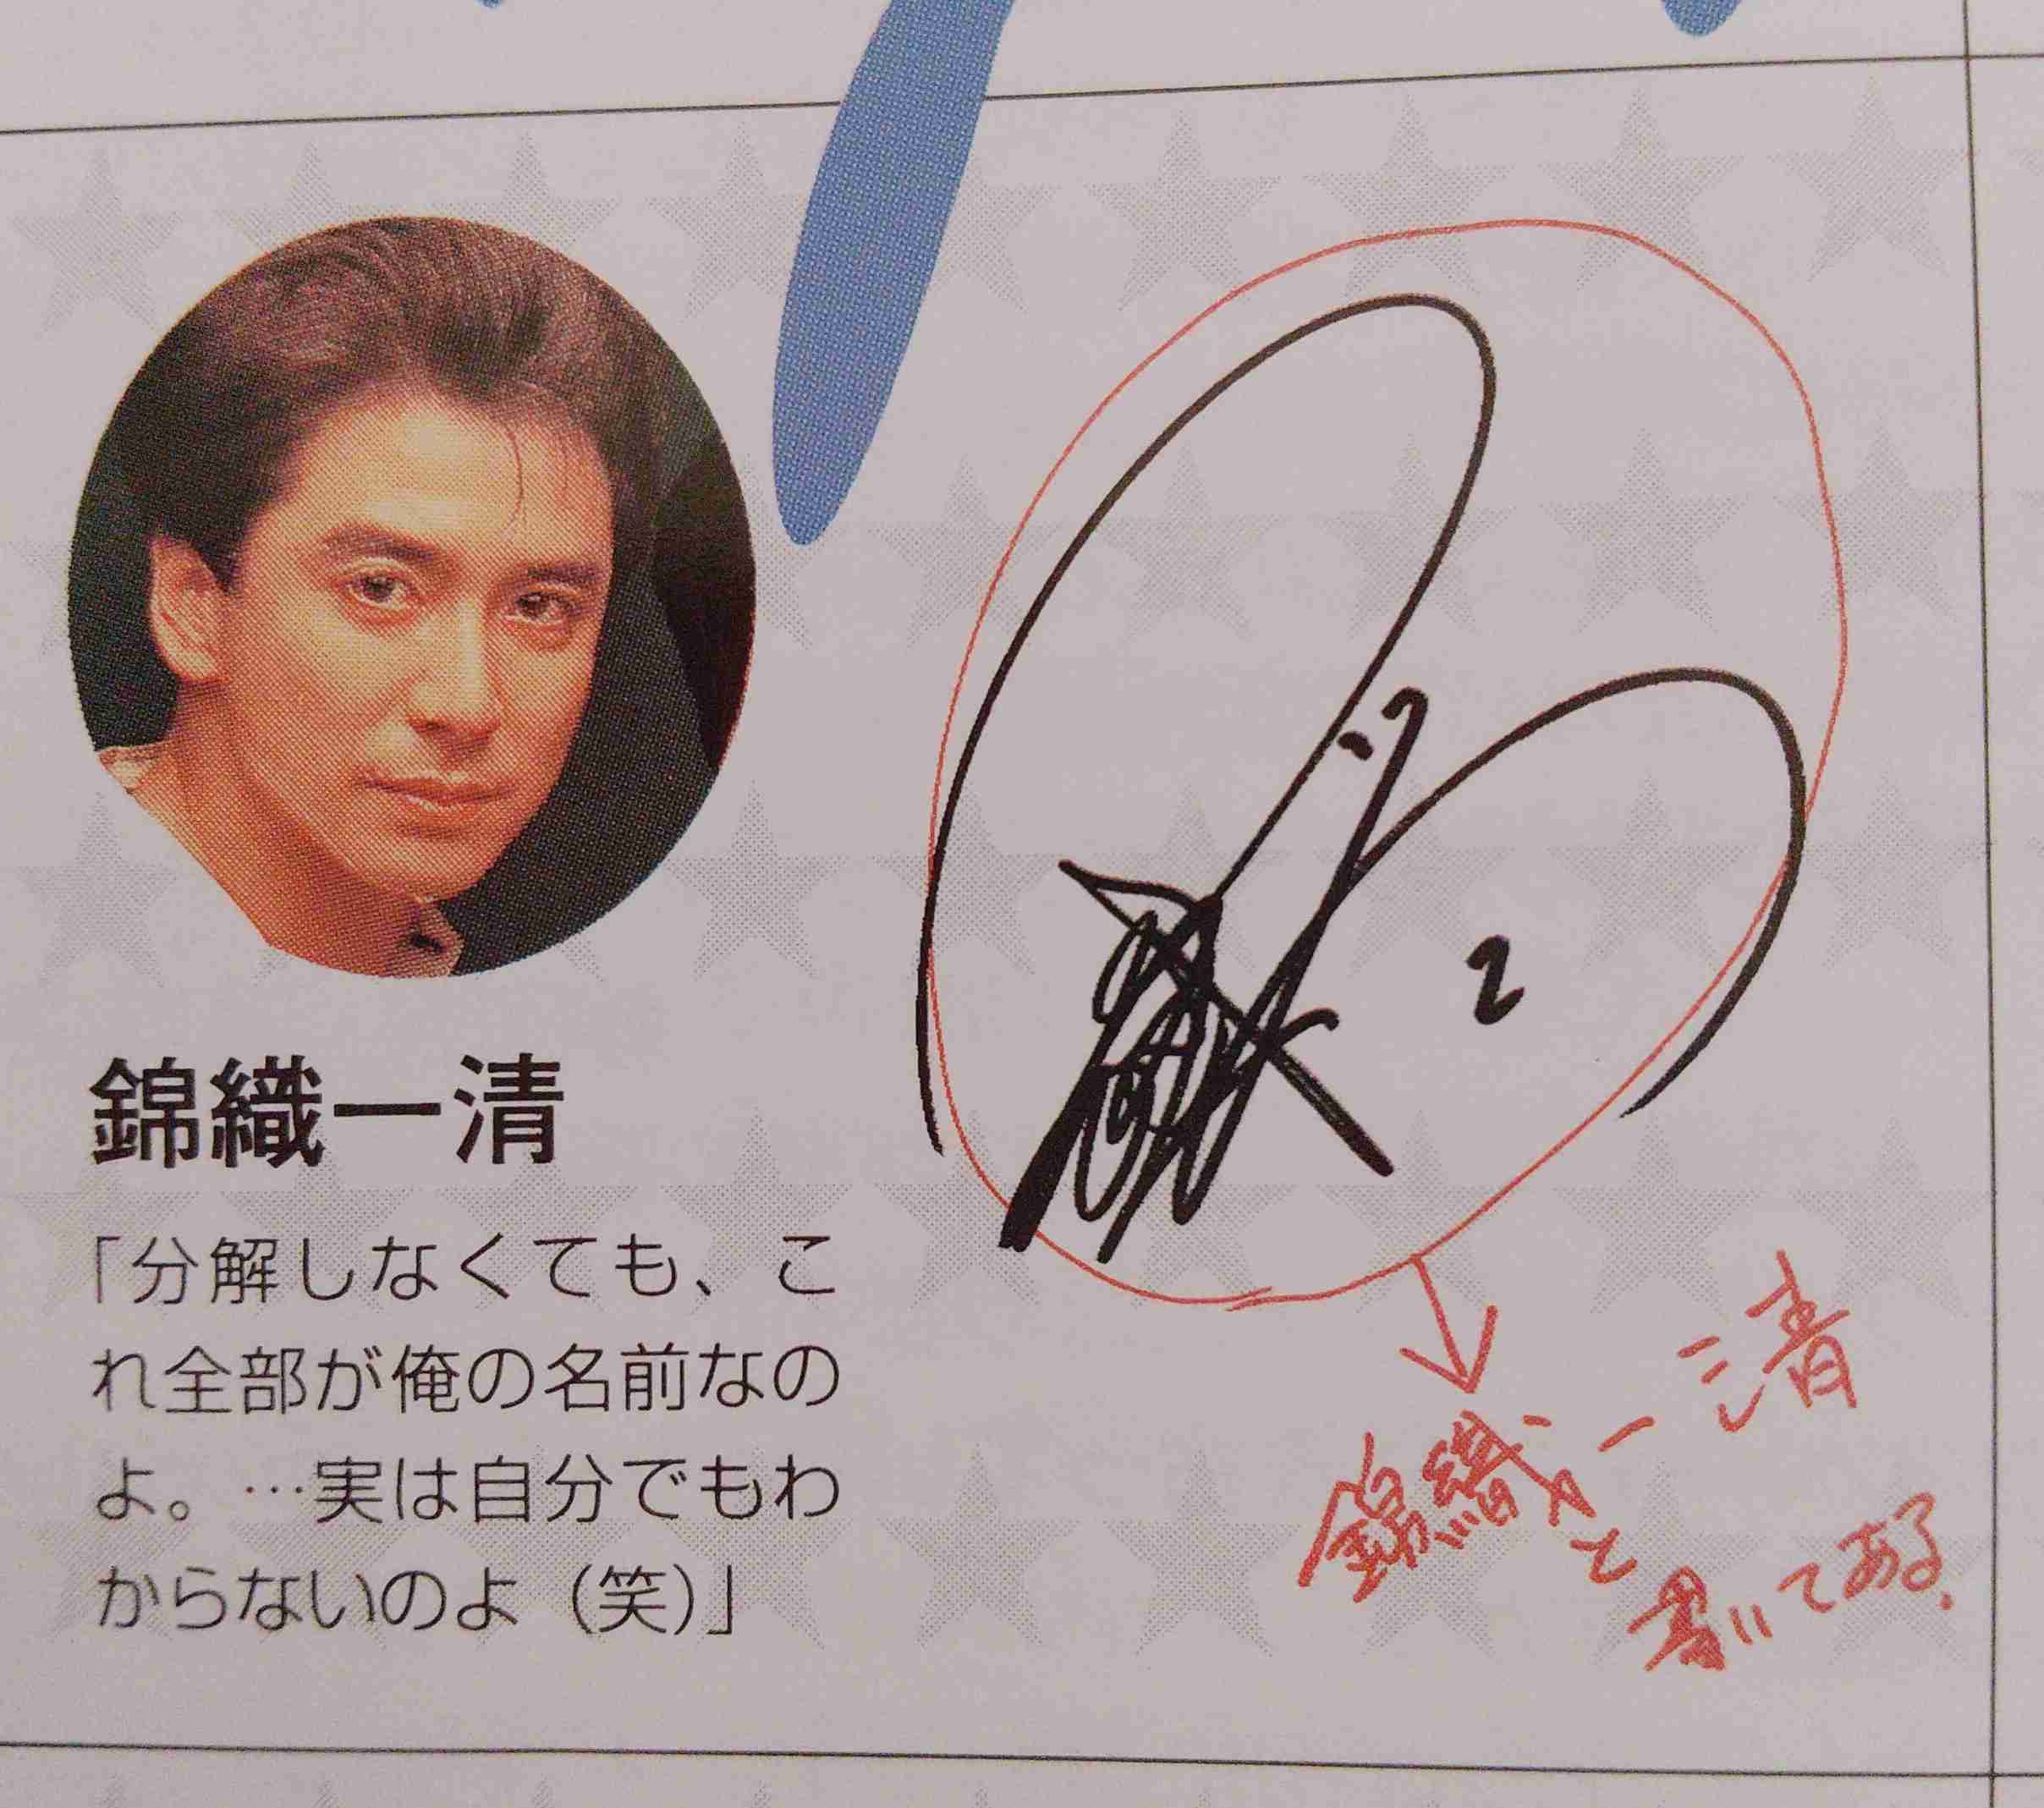 錦織一清
「分解しなくても、こ
れ全部が俺の名前なの
よ。…実は自分でもわ
からないのよ（笑）」
錦織一清
と書いてある.